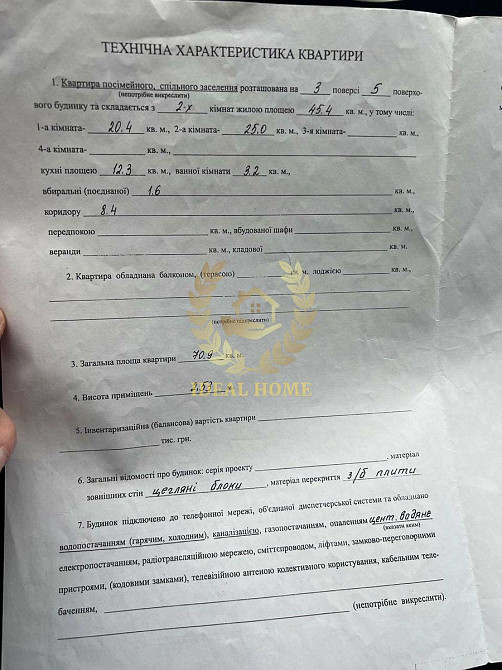 ТЕХНІЧНА ХАРАКТЕРИСТИКА КВАРТИРИ
1. Квартира посімейного, спільного заселення розташована на 3 поверсі 5 поверхо-
(непотрібне викреслити)
вого будинку та складається з 2-х кімнат жилою площею 45.4 кв. м., у тому числі:
1-а кімната- 20.4 кв. м., 2-а кімната- 25.0 кв. м., 3-я кімната- кв. м.,
4-а кімната- кв. м.,
кухні площею 12.3 кв. м., ванної кімнати 3.2 кв. м.,
вбиральні (поєднаної) 1.6 кв. м.,
коридору 8.4 кв. м.,
передпокою кв. м., вбудованої шафи кв. м.,
веранди кв. м., кладової кв. м.
2. Квартира обладнана балконом, (терасою) кв. м. лоджією кв. м.,
(непотрібне викреслити)
3. Загальна площа квартири 70.9 кв. м.
4. Висота приміщень 2,53 м.
IDEAL HOME
5. Інвентаризаційна (балансова) вартість квартири
тис. грн.
6. Загальні відомості про будинок: серія проекту , матеріал
зовнішних стін цегляні блоки , матеріал перекриття з/б плити
7. Будинок підключено до телефонної мережі, об'єднаної диспетчерської системи та обладнано
водопостачанням (гарячим, холодним), каналізацією, газопостачанням, опаленням цент. водяне
(вказати яким)
електропостачанням, радіотрансляційною мережею, сміттєпроводом, ліфтами, замково-переговорними
пристроями, (кодовими замками), телевізійною антеною колективного користування, кабельним теле-
баченням, (непотрібне викреслити).